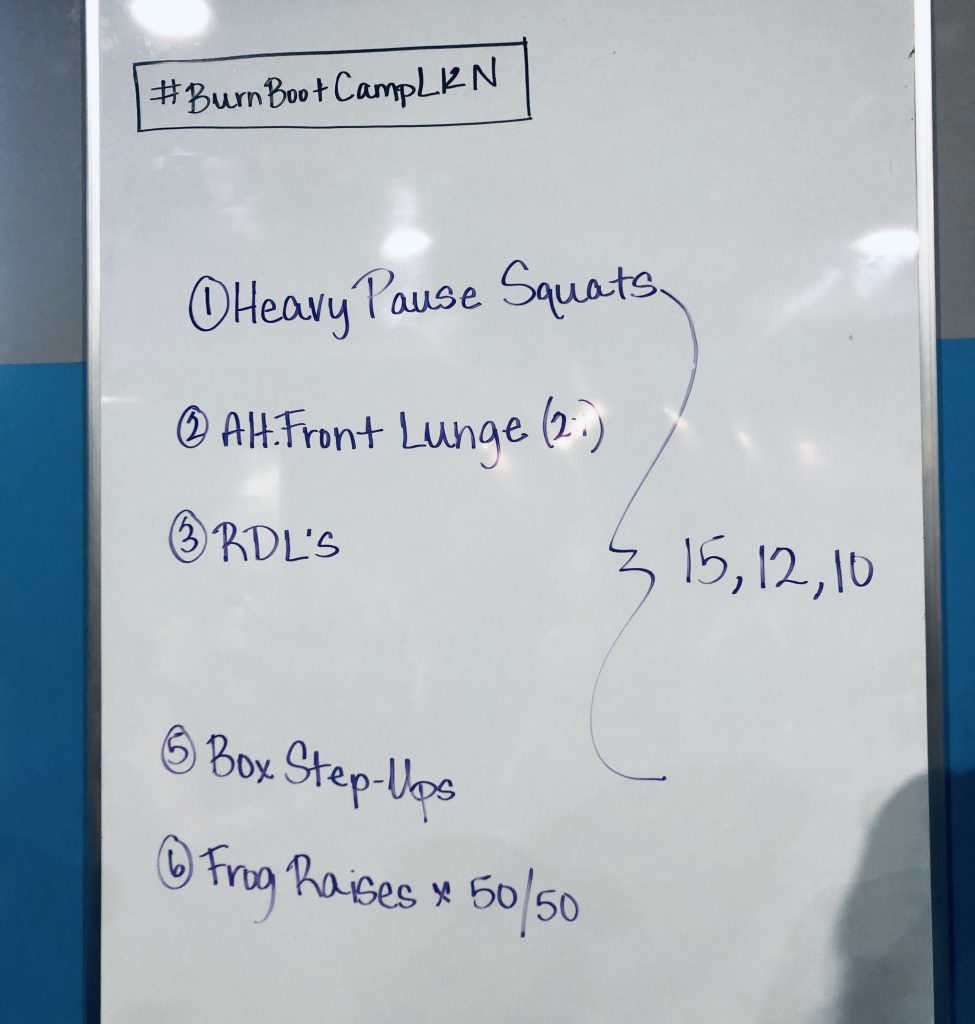 #BurnBootCampLKN
① Heavy Pause Squats
② Alt. Front Lunge (2:1)
③ RDL's
15, 12, 10
⑤ Box Step-Ups
⑥ Frog Raises x 50/50